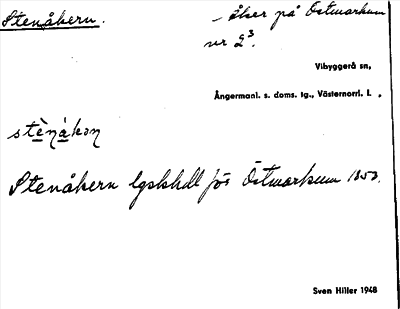 Stenåkern.
- åker på Östmarkum
nr 2³.
Vibyggerå sn,
Ångermanl. s. doms. tg., Västernorrl. l.
stè̱ṉá̱kəṇ
Stenåkern lgskhdl för Östmarkum 1850.
Sven Hiller 1948